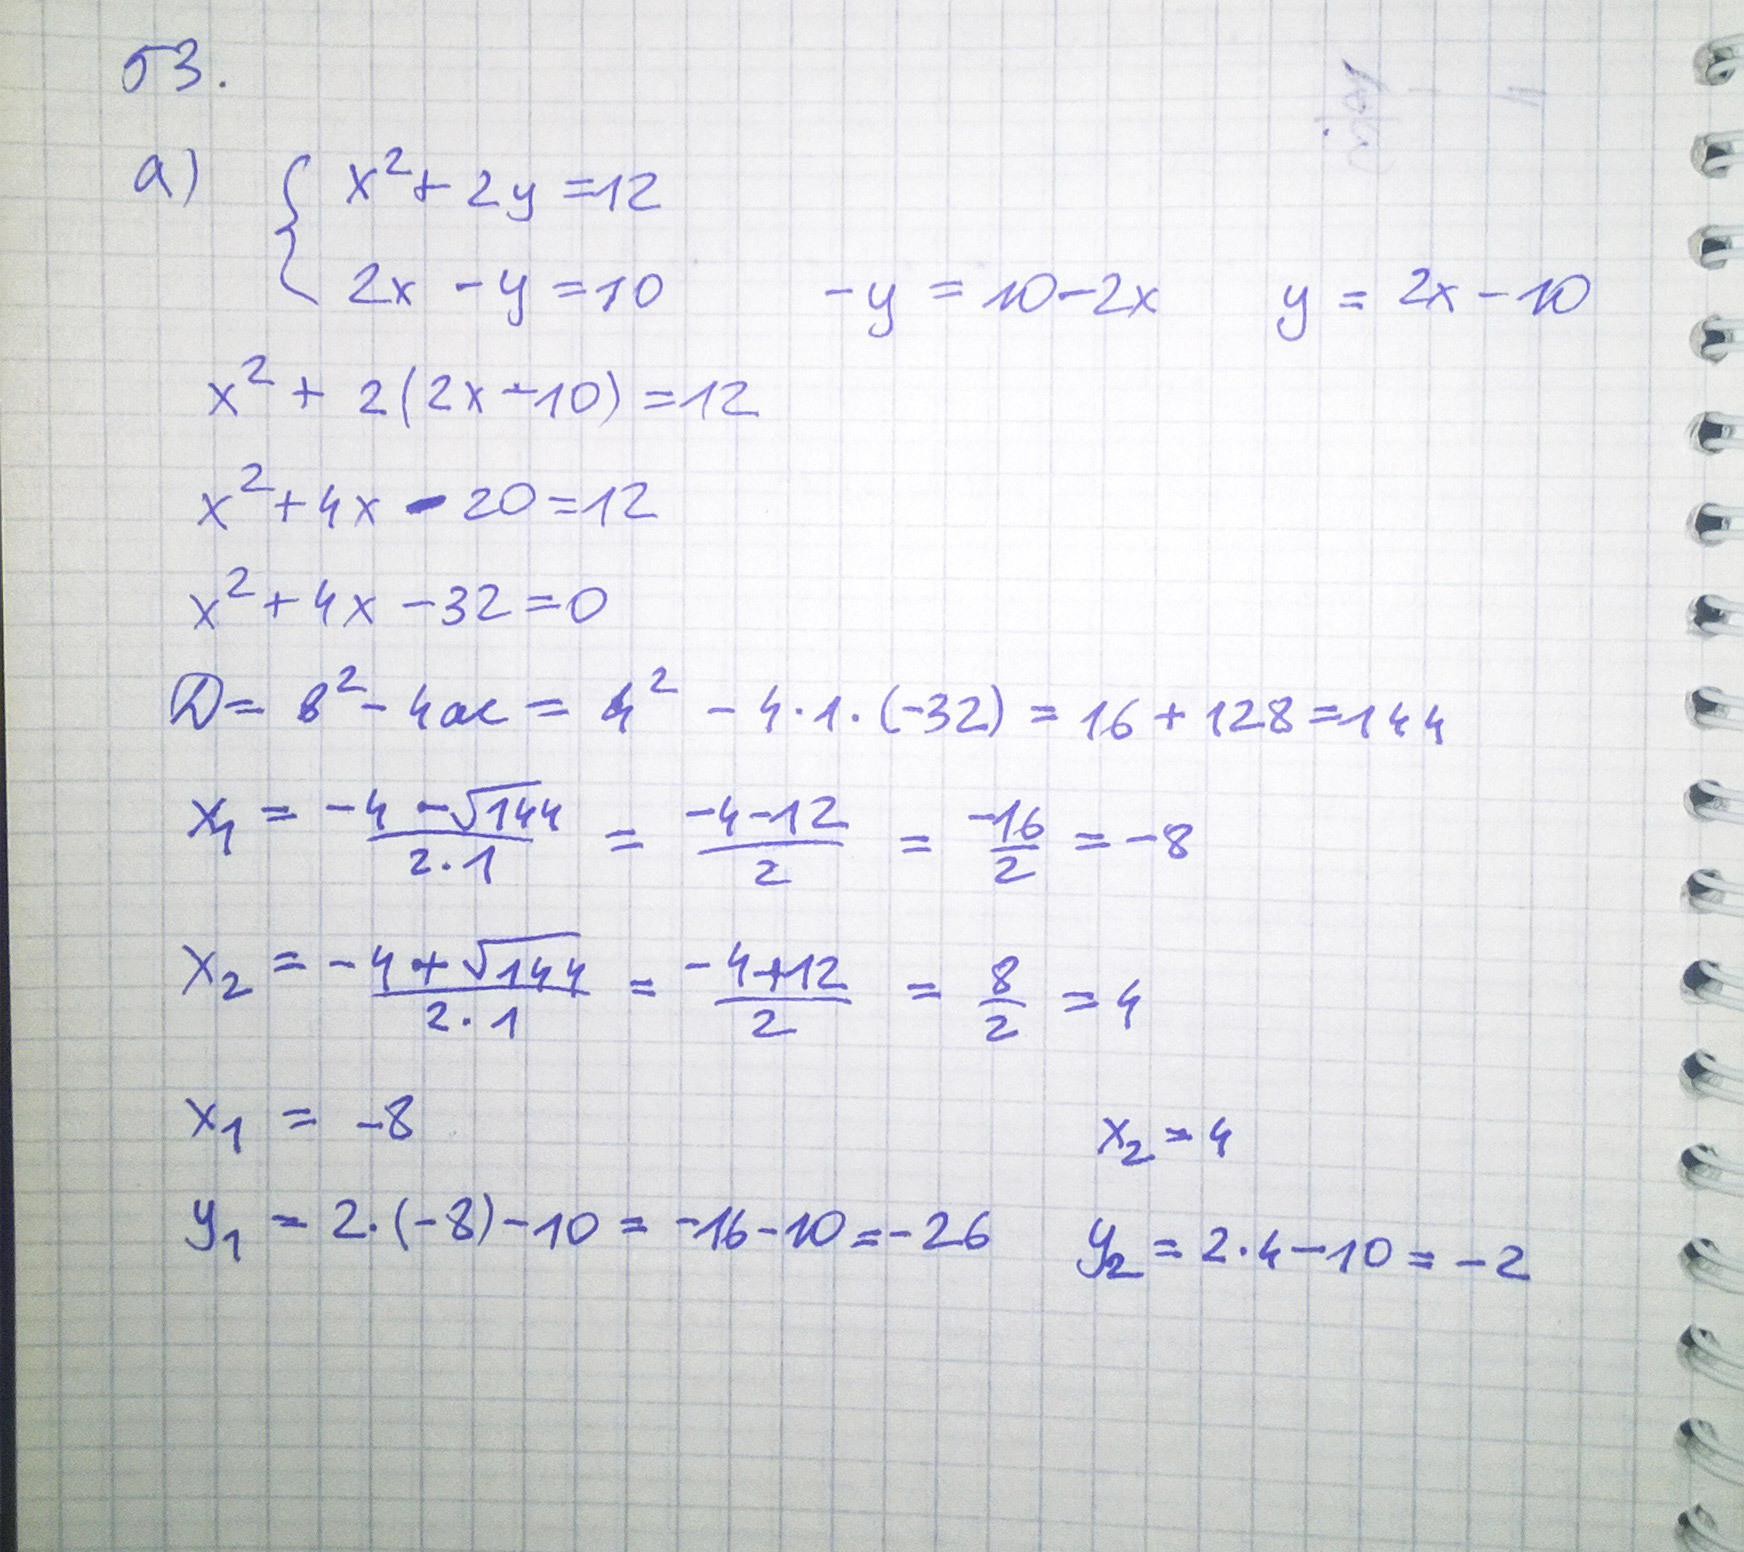 б3.
а) { x² + 2y = 12
2x - y = 10 -y = 10 - 2x y = 2x - 10
x² + 2(2x - 10) = 12
x² + 4x - 20 = 12
x² + 4x - 32 = 0
D = в² - 4ac = 4² - 4·1·(-32) = 16 + 128 = 144
x₁ = (-4 - √144)/(2·1) = (-4-12)/2 = -16/2 = -8
x₂ = (-4 + √144)/(2·1) = (-4+12)/2 = 8/2 = 4
x₁ = -8 x₂ = 4
y₁ = 2·(-8) - 10 = -16 - 10 = -26 y₂ = 2·4 - 10 = -2